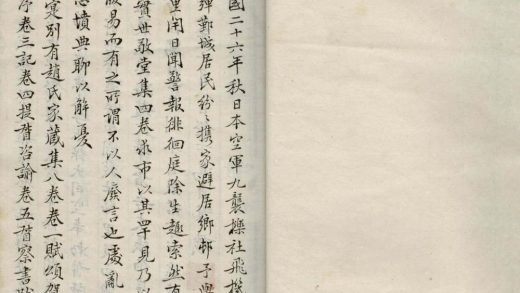 國二十六年秋日本空軍九襲櫟社飛機
彈鄞城居民紛〻攜家避居鄉邨予與
里閈日聞警報徘徊庭除生趣索然有
實世敬堂集四卷求市以其罕見乃以
版易而有之所謂不以人廢言也處亂
墳典聊以解憂
寔別有趙氏家藏集八卷卷一賦頌賀
序卷三記卷四提督咨諭卷五督察書